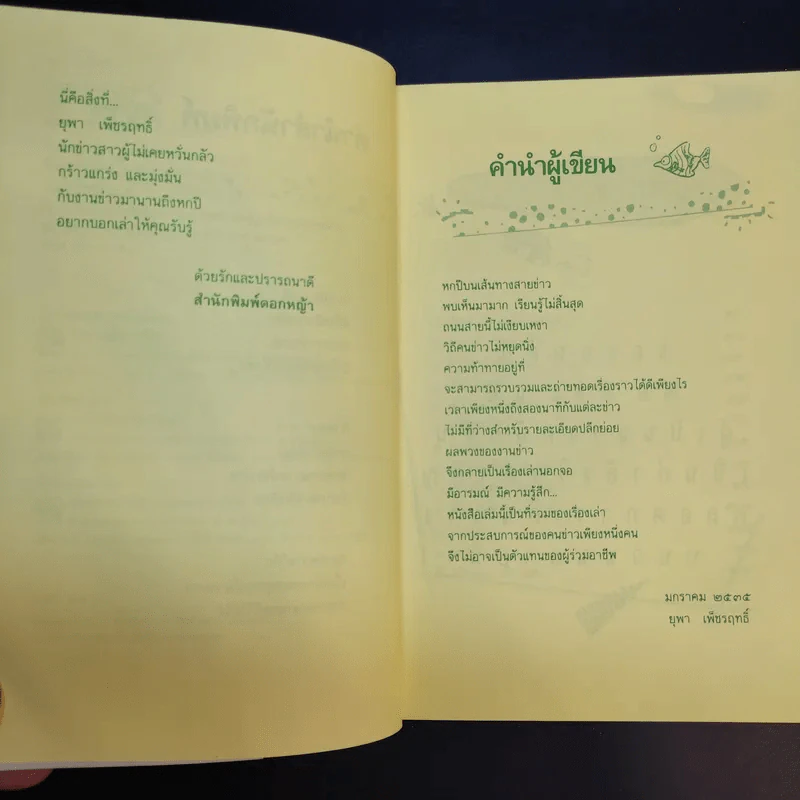 นี่คือสิ่งที่...
ยุพา เพ็ชรฤทธิ์
นักข่าวสาวผู้ไม่เคยหวั่นกลัว
กร้าวแกร่ง และมุ่งมั่น
กับงานข่าวมานานถึงหกปี
อยากบอกเล่าให้คุณรับรู้
ด้วยรักและปรารถนาดี
สำนักพิมพ์ดอกหญ้า
คำนำผู้เขียน
หกปีบนเส้นทางสายข่าว
พบเห็นมามาก เรียนรู้ไม่สิ้นสุด
ถนนสายนี้ไม่เงียบเหงา
วิถีคนข่าวไม่หยุดนิ่ง
ความท้าทายอยู่ที่
จะสามารถรวบรวมและถ่ายทอดเรื่องราวได้ดีเพียงไร
เวลาเพียงหนึ่งถึงสองนาทีกับแต่ละข่าว
ไม่มีที่ว่างสำหรับรายละเอียดปลีกย่อย
ผลพวงของงานข่าว
จึงกลายเป็นเรื่องเล่านอกจอ
มีอารมณ์ มีความรู้สึก...
หนังสือเล่มนี้เป็นที่รวมของเรื่องเล่า
จากประสบการณ์ของคนข่าวเพียงหนึ่งคน
จึงไม่อาจเป็นตัวแทนของผู้ร่วมอาชีพ
มกราคม ๒๕๓๕
ยุพา เพ็ชรฤทธิ์